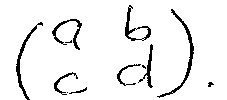 (a b
c d).